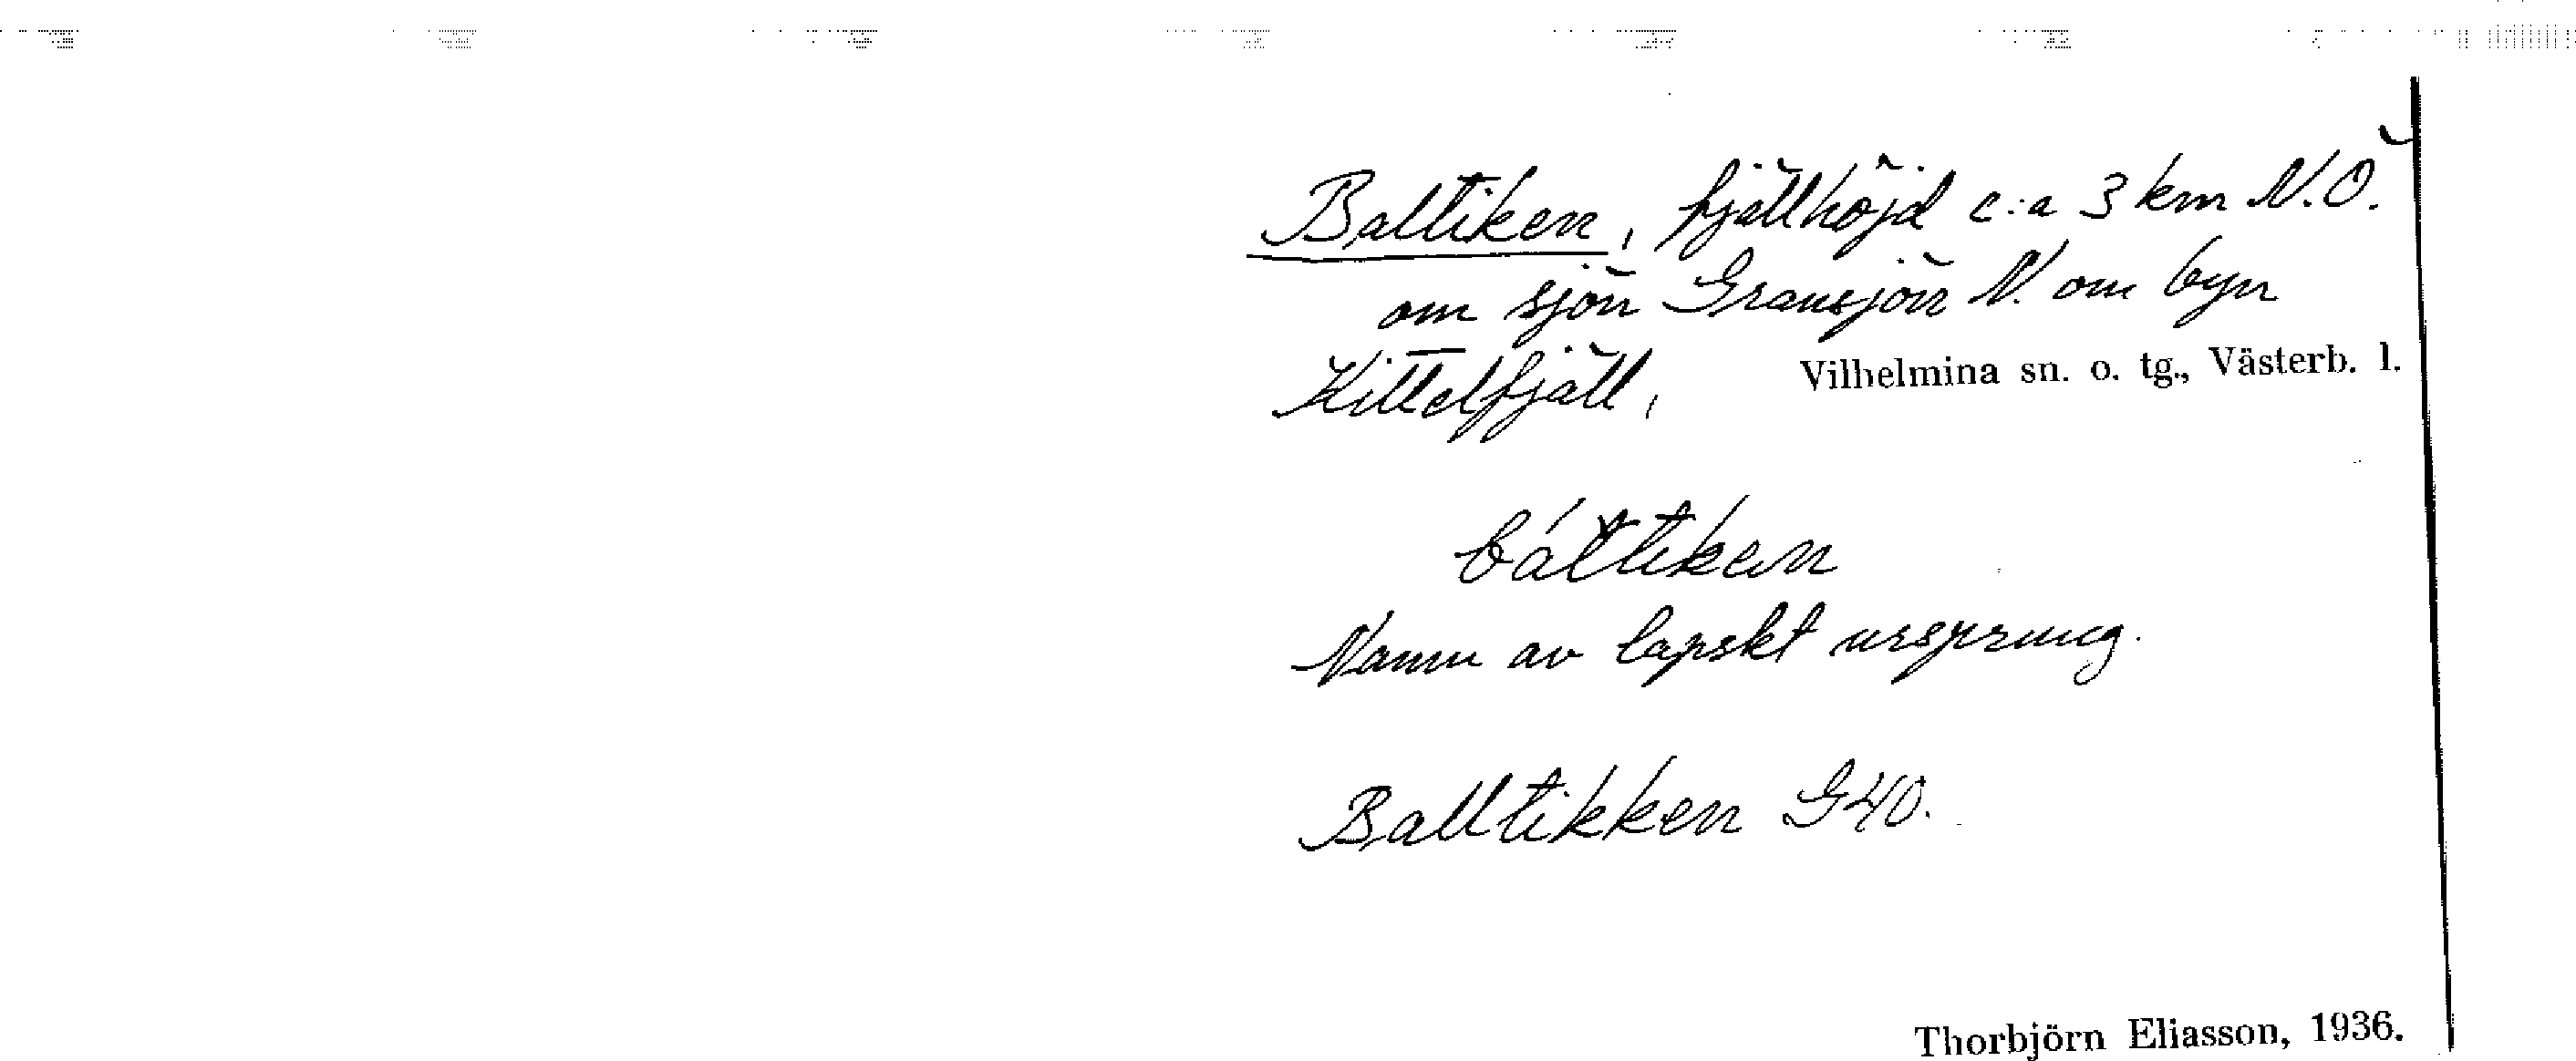 Baltiken, fjällhöjd c:a 3 km N.Ö.
om sjön Gransjön N. om byn
Kittelfjäll, Vilhelmina sn. o. tg., Västerb. l.
báltiken
Namn av lapskt ursprung.
Balltikken G40.
Thorbjörn Eliasson, 1936.